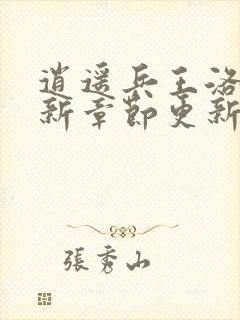 逍遥兵王洛
新章节更新
張秀山